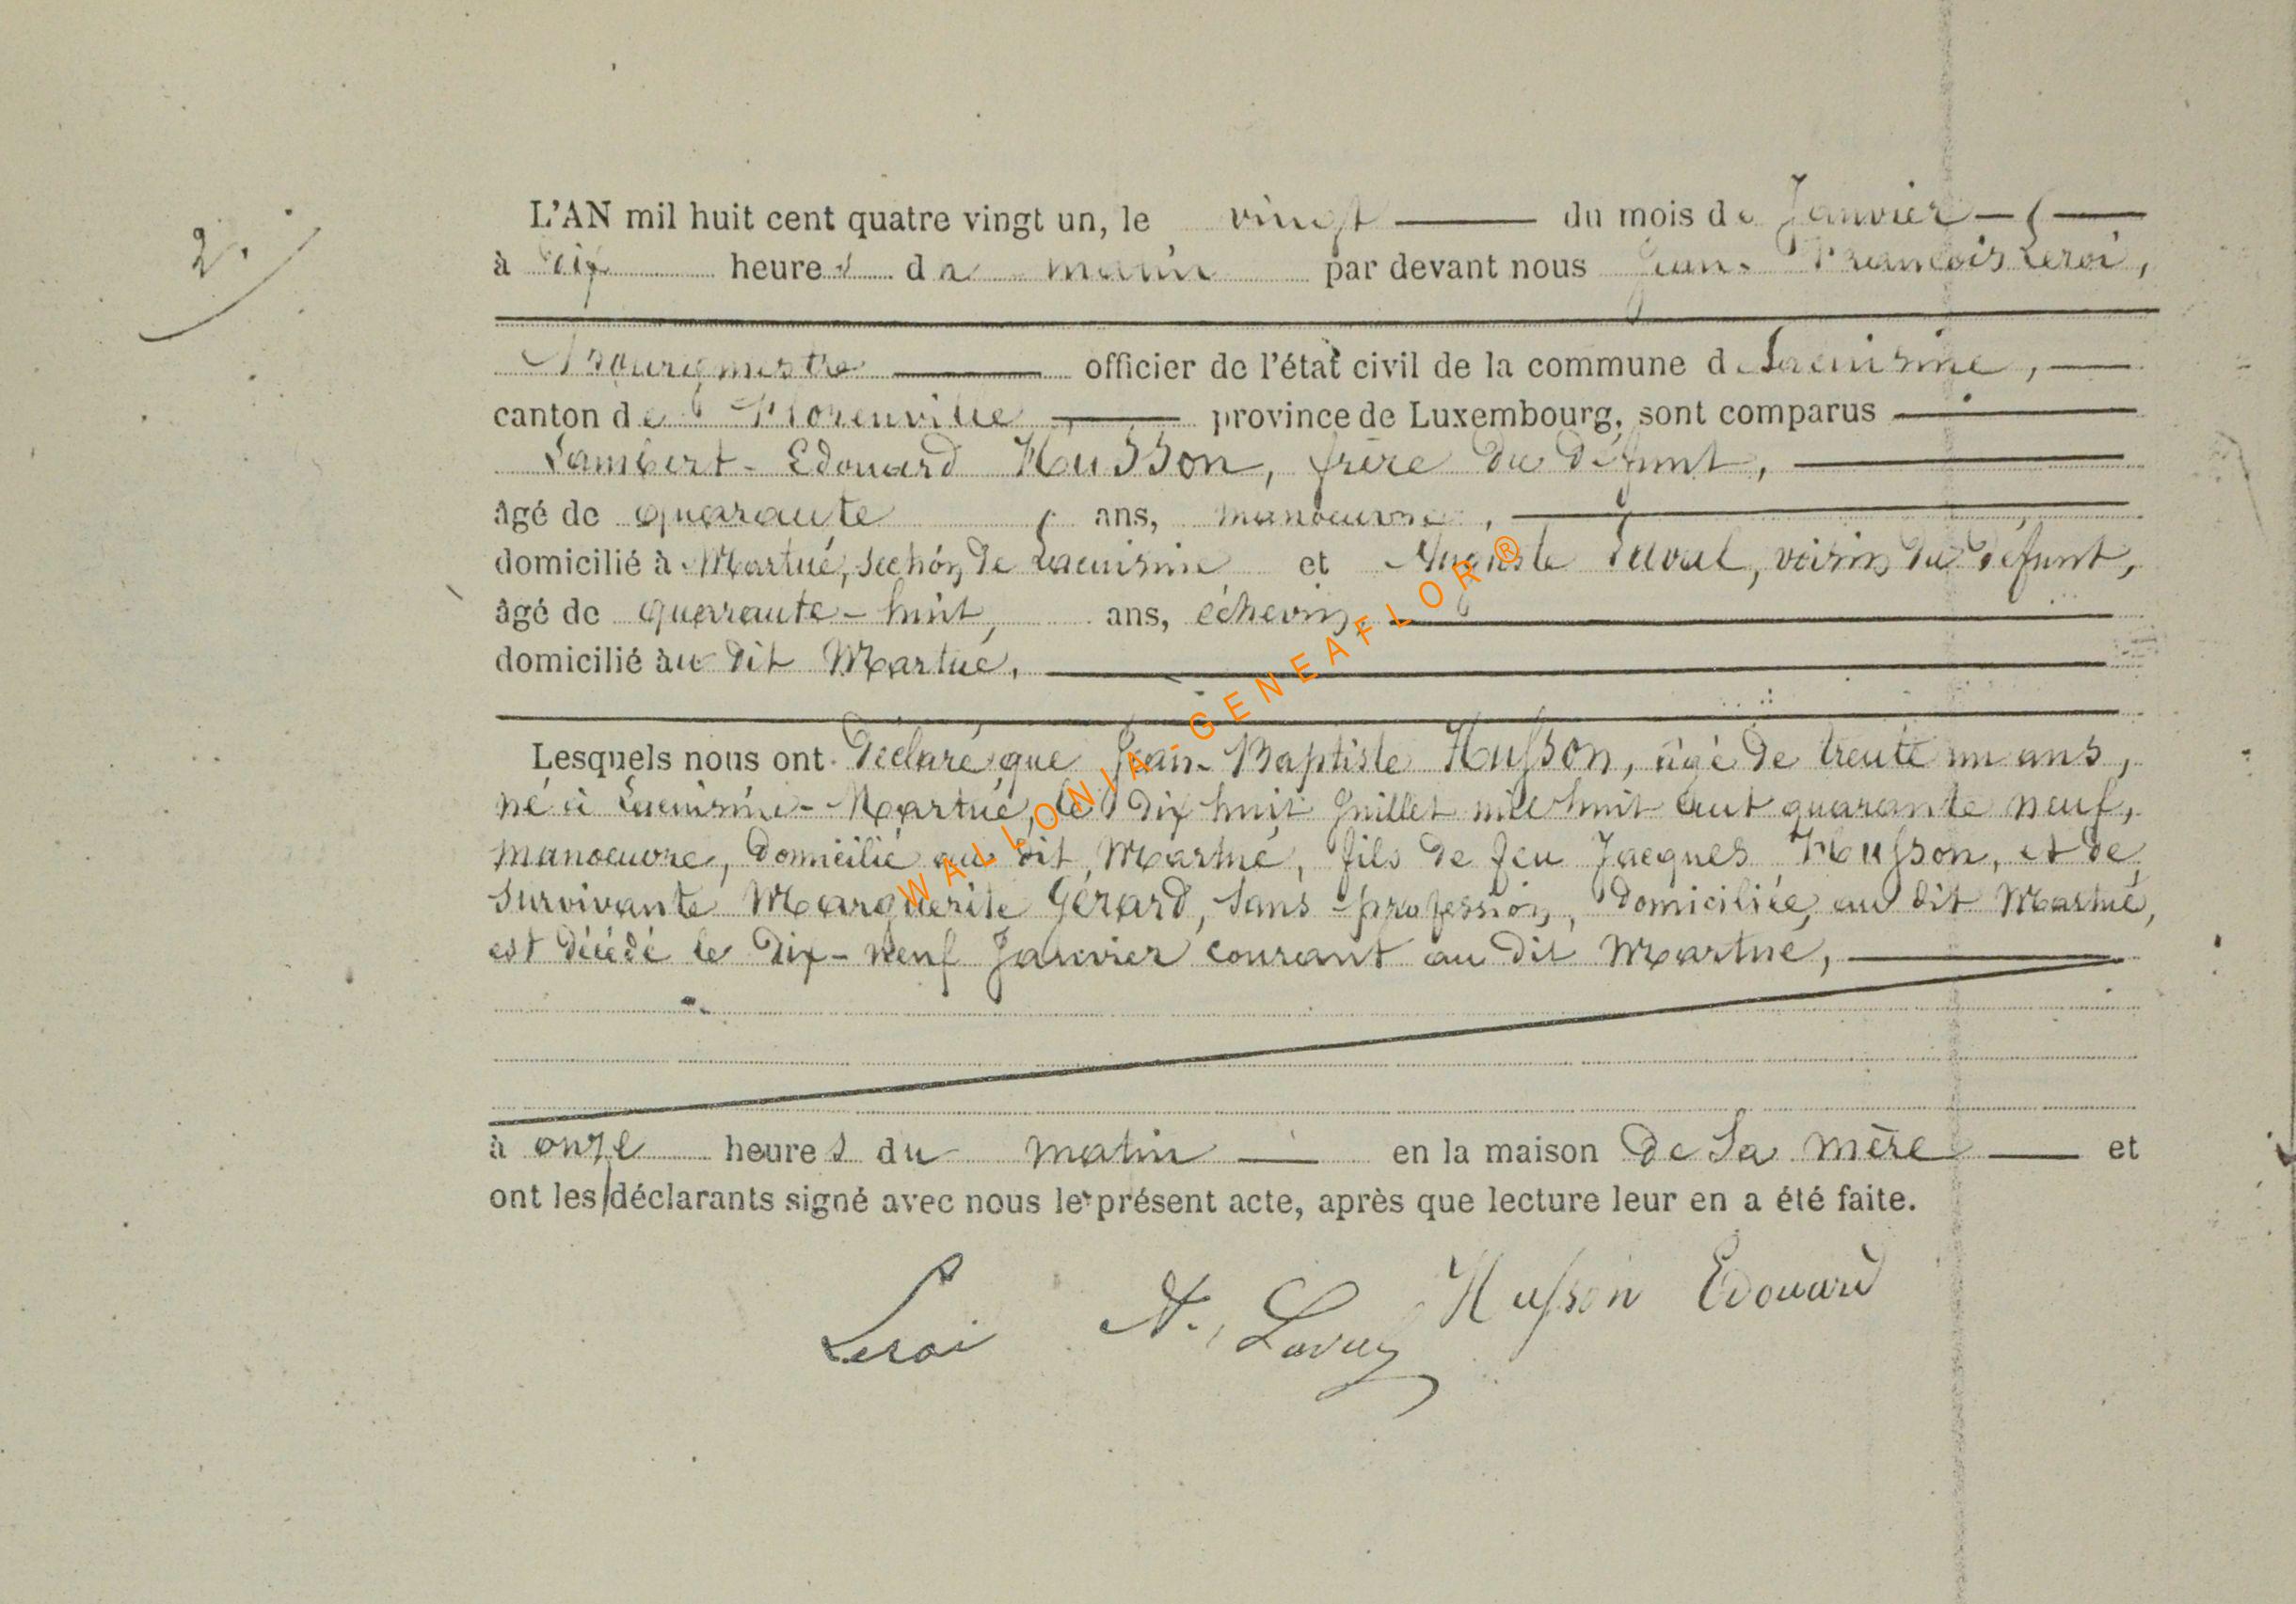 2.
L'AN mil huit cent quatre vingt un, le vingt du mois de Janvier
à dix heures du matin par devant nous Jean-François Leroi,
Bourgmestre officier de l'état civil de la commune de Lacuisine,
canton de Florenville province de Luxembourg, sont comparus
Lambert-Edouard Husson, frère du défunt,
âgé de quarante ans, manoeuvre,
domicilié à Martué, section de Lacuisine et Auguste Laval, voisin du défunt,
âgé de quarante-huit, ans, échevin,
domicilié au dit Martué.
Lesquels nous ont déclaré que Jean-Baptiste Husson, âgé de trente un ans,
né à Lacuisine-Martué, le dix huit Juillet mil huit cent quarante neuf,
manoeuvre, domicilié au dit Martué, fils de feu Jacques Husson, et de
survivante Marguerite Gérard, sans profession, domiciliée au dit Martué,
est décédé le dix-neuf Janvier courant au dit Martué,
à onze heures du matin en la maison de sa mère et
ont les déclarants signé avec nous le présent acte, après que lecture leur en a été faite.
Leroi A. Laval Husson Edouard
WALLONIA-GENEAFLOR®